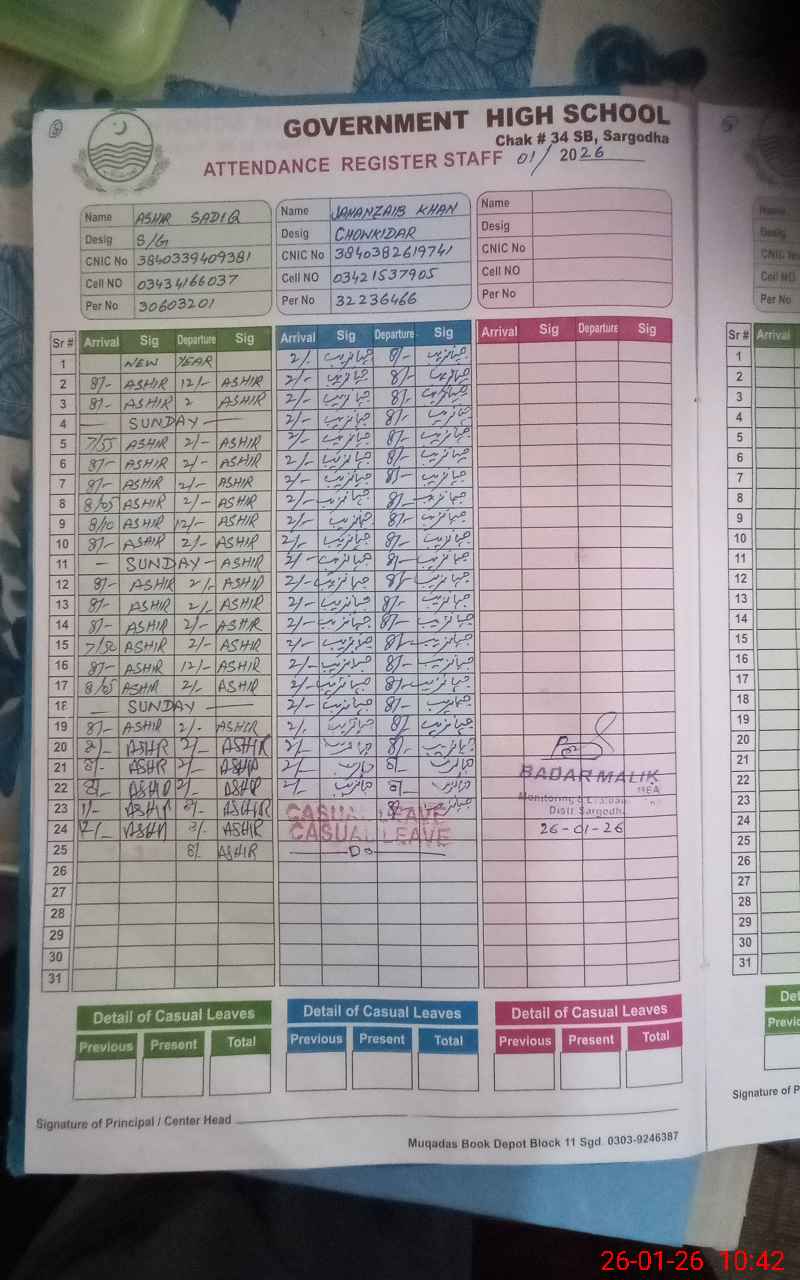 GOVERNMENT HIGH SCHOOL
Chak # 34 SB, Sargodha
ATTENDANCE REGISTER STAFF 01/2026
Name ASHIR SADIQ Name JAHANZAIB KHAN Name
Desig S/G Desig CHOWKIDAR Desig
CNIC No 3840339409381 CNIC No 3840382619741 CNIC No
Cell NO 03434166037 Cell NO 03421537905 Cell NO
Per No 30603201 Per No 32236466 Per No
Sr # Arrival Sig Departure Sig Arrival Sig Departure Sig Arrival Sig Departure Sig Sr # Arrival
1 NEW YEAR 2/- جہانزیب 8/- جہانزیب 1
2 8/- ASHIR 12/- ASHIR 2/- جہانزیب 8/- جہانزیب 2
3 8/- ASHIR 2 ASHIR 2/- جہانزیب 8/- جہانزیب 3
4 — SUNDAY — 2/- جہانزیب 8/- جہانزیب 4
5 7/55 ASHIR 2/- ASHIR 2/- جہانزیب 8/- جہانزیب 5
6 8/- ASHIR 2/- ASHIR 2/- جہانزیب 8/- جہانزیب 6
7 8/- ASHIR 2/- ASHIR 2/- جہانزیب 8/- جہانزیب 7
8 8/05 ASHIR 2/- ASHIR 2/- جہانزیب 8/- جہانزیب 8
9 8/10 ASHIR 12/- ASHIR 2/- جہانزیب 8/- جہانزیب 9
10 8/- ASHIR 2/- ASHIR 2/- جہانزیب 8/- جہانزیب 10
11 — SUNDAY — ASHIR 2/- جہانزیب 8/- جہانزیب 11
12 8/- ASHIR 2/- ASHIR 2/- جہانزیب 8/- جہانزیب 12
13 8/- ASHIR 2/- ASHIR 2/- جہانزیب 8/- جہانزیب 13
14 8/- ASHIR 2/- ASHIR 2/- جہانزیب 8/- جہانزیب 14
15 7/50 ASHIR 2/- ASHIR 2/- جہانزیب 8/- جہانزیب 15
16 8/- ASHIR 12/- ASHIR 2/- جہانزیب 8/- جہانزیب 16
17 8/05 ASHIR 2/- ASHIR 2/- جہانزیب 8/- جہانزیب 17
18 — SUNDAY — 2/- جہانزیب 8/- جہانزیب 18
19 8/- ASHIR 2/- ASHIR 2/- جہانزیب 8/- جہانزیب 19
20 ASHIR 2/- ASHIR 2/- جہانزیب 8/- جہانزیب 20
21 8/- ASHIR 2/- ASHIR 2/- جہانزیب 8/- جہانزیب BADAR MALIK 21
22 8/- ASHIR 2/- ASHIR 2/- جہانزیب 8/- جہانزیب MEA 22
23 ASHIR 8/- ASHIR CASUAL LEAVE 8/- جہانزیب Monitoring Distt Sargodha 23
24 ASHIR ASHIR CASUAL LEAVE 26-01-26 24
25 8/- ASHIR — Do — 25
26 26
27 27
28 28
29 29
30 30
31 31
Detail of Casual Leaves Detail of Casual Leaves Detail of Casual Leaves
Previous Present Total Previous Present Total Previous Present Total
Signature of Principal / Center Head
Muqadas Book Depot Block 11 Sgd. 0303-9246387
Signature of P
26-01-26 10:42